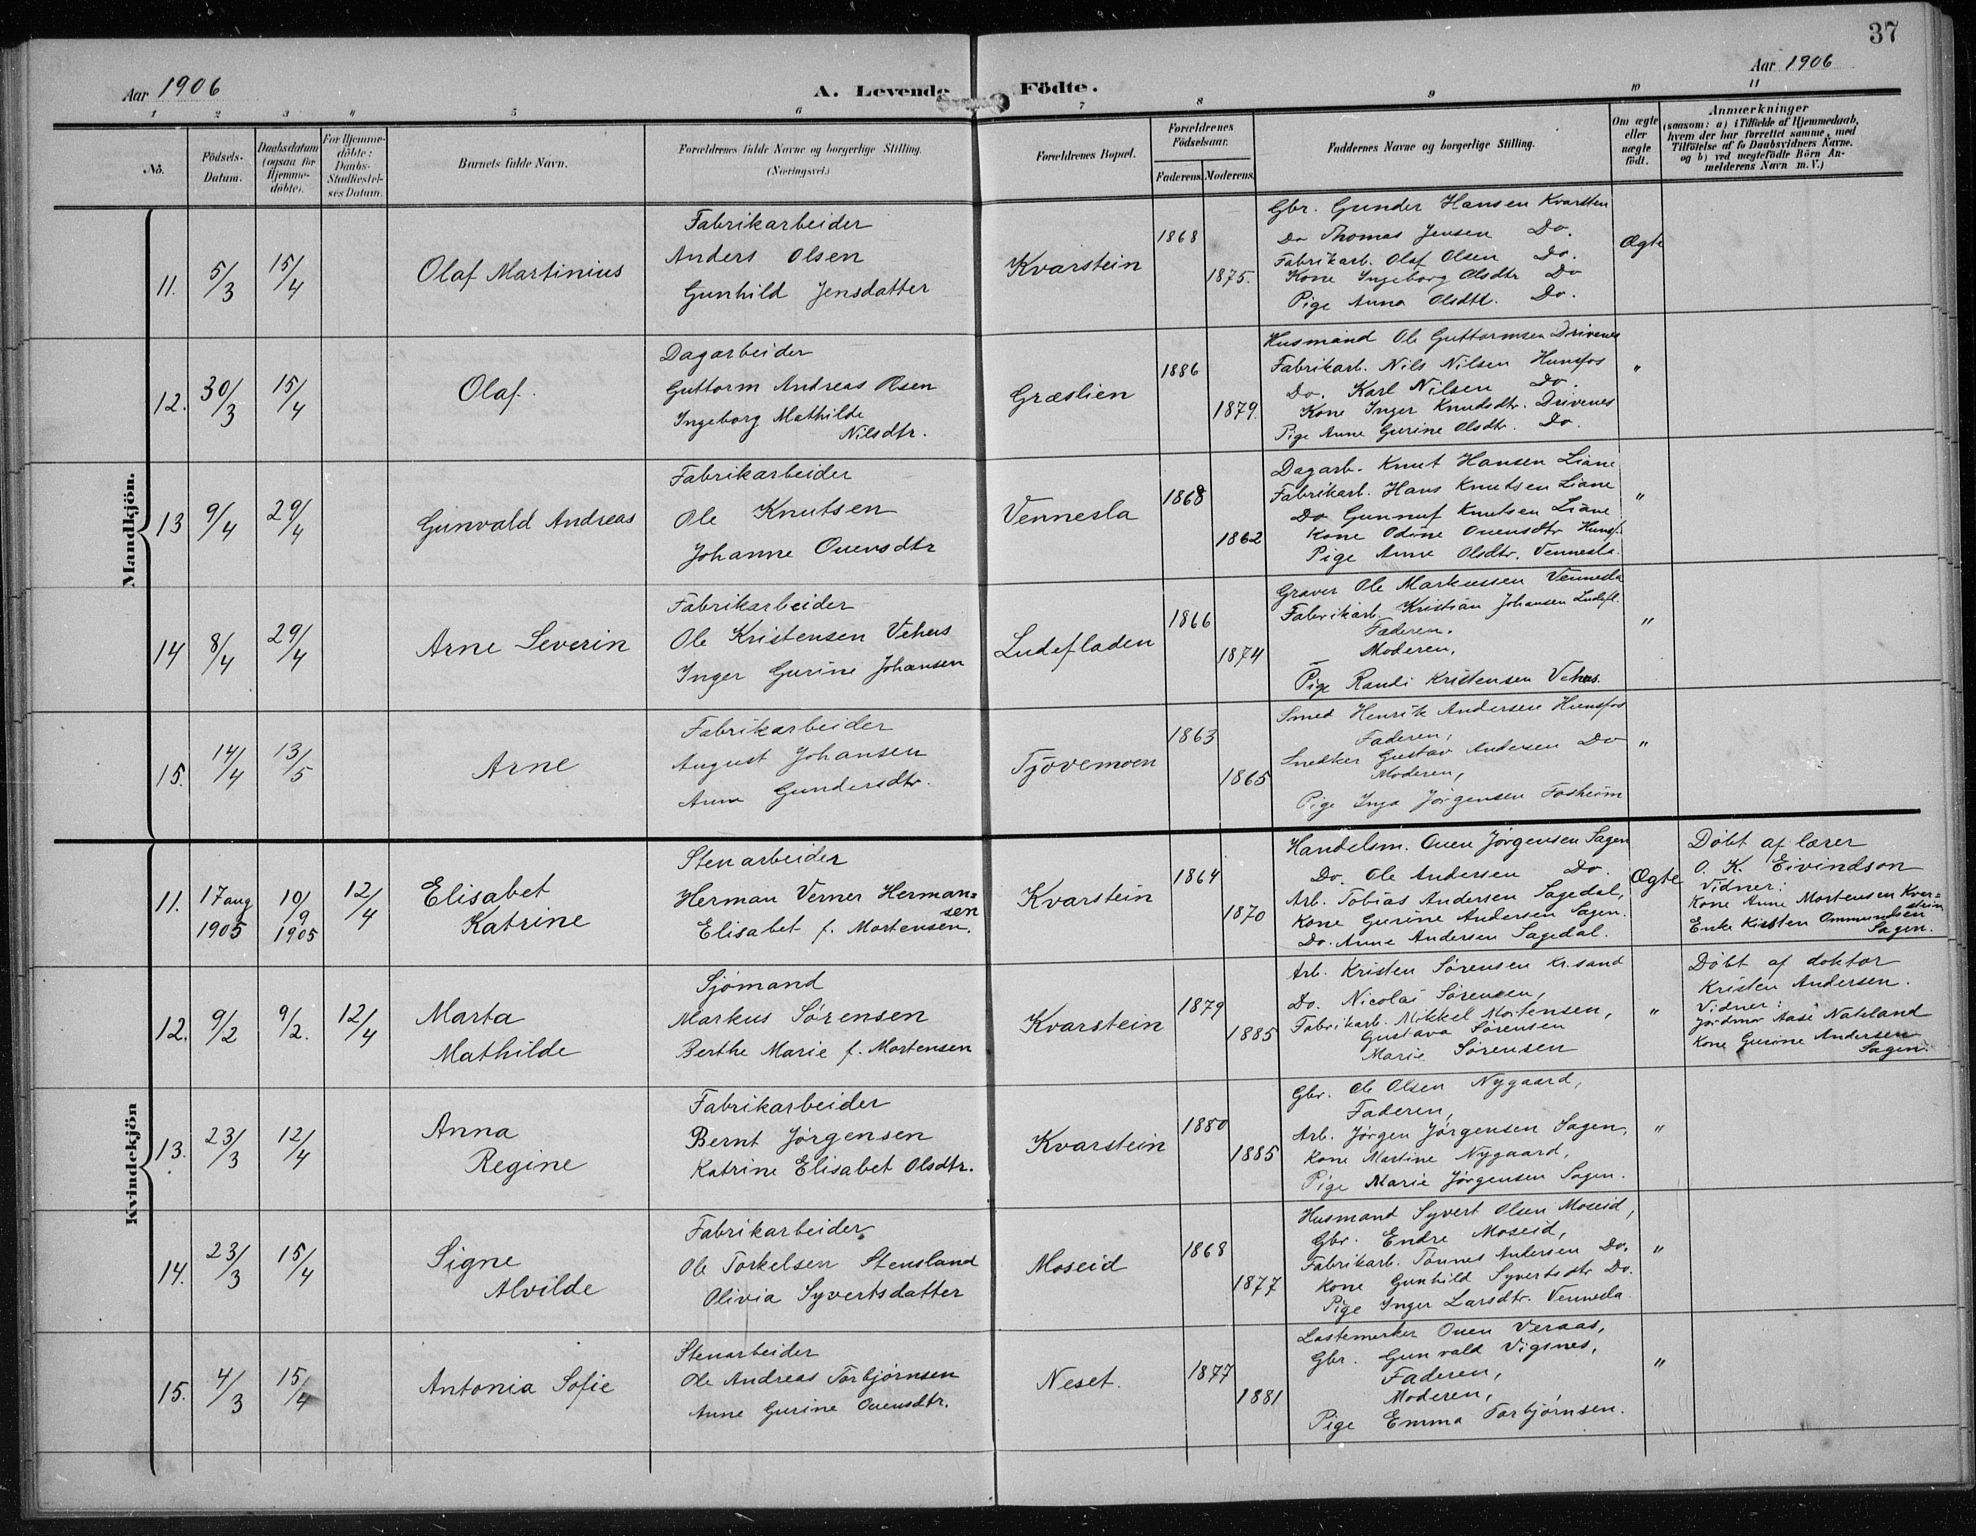 37
Aar 1906
A. Levende Födte.
Aar 1906
1 2 3 4 5 6 7 8 9 10 11
No.
Födsels-Datum.
Daabsdatum (ogsaa for Hjemme-döbte).
For Hjemme-döbte: Daabs-Stadfæstelses Datum.
Barnets fulde Navn.
Forældrenes fulde Navne og borgerlige Stilling.
(Næringsvei.)
Forældrenes Bopæl.
Forældrenes Födselsaar.
Faderens. Moderens.
Faddernes Navne og borgerlige Stilling.
Om ægte eller uægte födt.
Anmærkninger
(saasom: a) i Tilfælde af Hjemmedaab, hvem der har forrettet samme, med Tilföielse af to Daabsvidners Navne, og b) ved uægtefödte Börn An-melderens Navn m. V.)
Mandkjön.
11. 5/3 15/4 Olaf Martinius
Fabrikarbeider
Anders Olsen
Gunhild Jensdatter
Kvarstein 1868 1875.
Gbr. Gunder Hansen Kvarsten
Do Thomas Jensen Do.
Fabrikarb. Olaf Olsen Do.
Kone Ingeborg Olsdtr Do
Pige Anna Olsdtt. Do.
Ægte
12. 30/3 15/4 Olaf.
Dagarbeider
Guttorm Andreas Olsen
Ingeborg Mathilde
Nilsdtr.
Græslien 1886 1879.
Husmand Ole Guttormsen Drivenes
Fabrikarb. Nils Nilsen Hunsfos
Do. Karl Nilsen Do.
Kone Inger Knudsdtr. Drivenes
Pige Anne Gurine Olsdtr. Do.
"
13 9/4 29/4 Gunvald Andreas
Fabrikarbeider
Ole Knutsen
Johanne Ouensdtr
Vennesla 1868 1862
Dagarb. Knut Hansen Liane
Fabrikarb. Hans Knutsen Liane
Do Gunnuf Knutsen Liane
Kone Odine Ouensdtr Hunsf.
Pige Anne Olsdtr. Vennesla.
"
14 8/4 29/4 Arne Severin
Fabrikarbeider
Ole Kristensen Vehus
Inger Gurine Johansen
Ludefladen 1866 1874
Graver Ole Markussen Vennesla
Fabrikarb. Kristian Johansen Ludefl.
Faderen.
Moderen,
Pige Randi Kristensen Vehus.
"
15. 14/4 13/5 Arne
Fabrikarbeider
August Johansen
Anna Gundersdtr.
Tjovemoen 1863 1865
Smed Henrik Andersen Hunsfos
Faderen,
Snedker Gustav Andersen Do
Moderen,
Pige Inga Jørgensen Fosheim
"
Kvindekjön
11. 17 aug 1905 10/9 1905 12/4 Elisabet
Katrine
Stenarbeider
Herman Verner Herman=
sen
Elisabet f. Mortensen.
Kvarstein 1864 1870
Handelsm. Ouen Jørgensen Sagen
Do. Ole Andersen Do.
Arb. Tobias Andersen Sagedal,
Kone Gurine Andersen Sagen.
Do. Anne Andersen Sagedal.
Ægte
Døbt af lærer
O. K. Eivindson
Vidner:
Kone Anne Mortensen Kvar=
stein
Enke Kirsten Ommundsen
Sagen.
12. 9/2 9/2. 12/4 Marta
Mathilde
Sjömand
Markus Sørensen
Berthe Marie f. Mortensen
Kvarstein 1879 1885
Arb. Kristen Sørensen Kr.sand
Do. Nicolai Sørensen,
Fabrikarb. Mikkel Mortensen,
Gustava Sørensen
Marie Sørensen
"
Døbt af doktor
Kristen Andersen.
Vidner:
Jordmor Aase Nateland
Kone Gurine Andersen
Sagen.
13. 23/3 12/4 Anna
Regine
Fabrikarbeider
Bernt Jørgensen
Katrine Elisabet Olsdtr.
Kvarstein 1880 1885
Gbr. Ole Olsen Nygaard,
Faderen,
Arb. Jørgen Jørgensen Sagen,
Kone Martine Nygaard,
Pige Marie Jørgensen Sagen.
"
14. 23/3 15/4 Signe
Alvilde
Fabrikarbeider
Ole Torkelsen Stensland
Olivia Syvertsdatter
Moseid 1868 1877
Husmand Syvert Olsen Moseid,
Gbr. Endre Moseid,
Fabrikarb. Tønnes Andersen Do.
Kone Gunhild Syvertsdtr Do.
Pige Inger Larsdtr. Vennesla.
"
15. 4/3 15/4 Antonia Sofie
Stenarbeider
Ole Andreas Torbjørnsen
Anne Gurine Ouensdtr.
Neset. 1877 1881
Lastemerker Ouen Veraas,
Gbr. Gunvald Vigsnes,
Faderen,
Moderen,
Pige Emma Torbjørnsen.
"